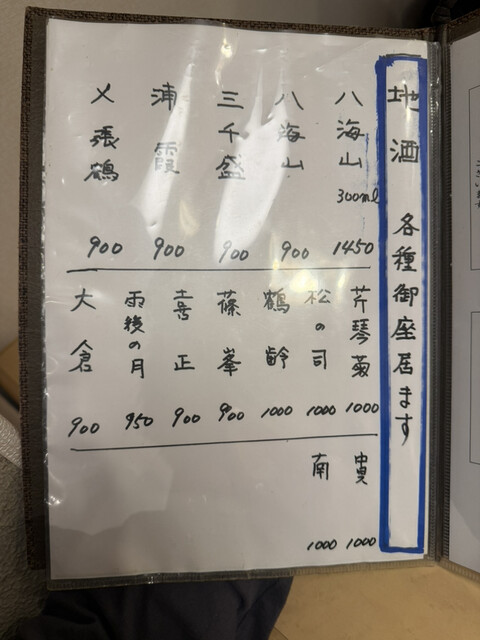 地酒 各種御座居ます
八海山 300ml 1450
八海山 900
三千盛 900
浦霞 900
〆張鶴 900
芹琴菊 1000
松の司 1000
鶴齢 1000
篠峯 900
喜正 900
雨後の月 950
大倉 900
中叟 1000
南 1000